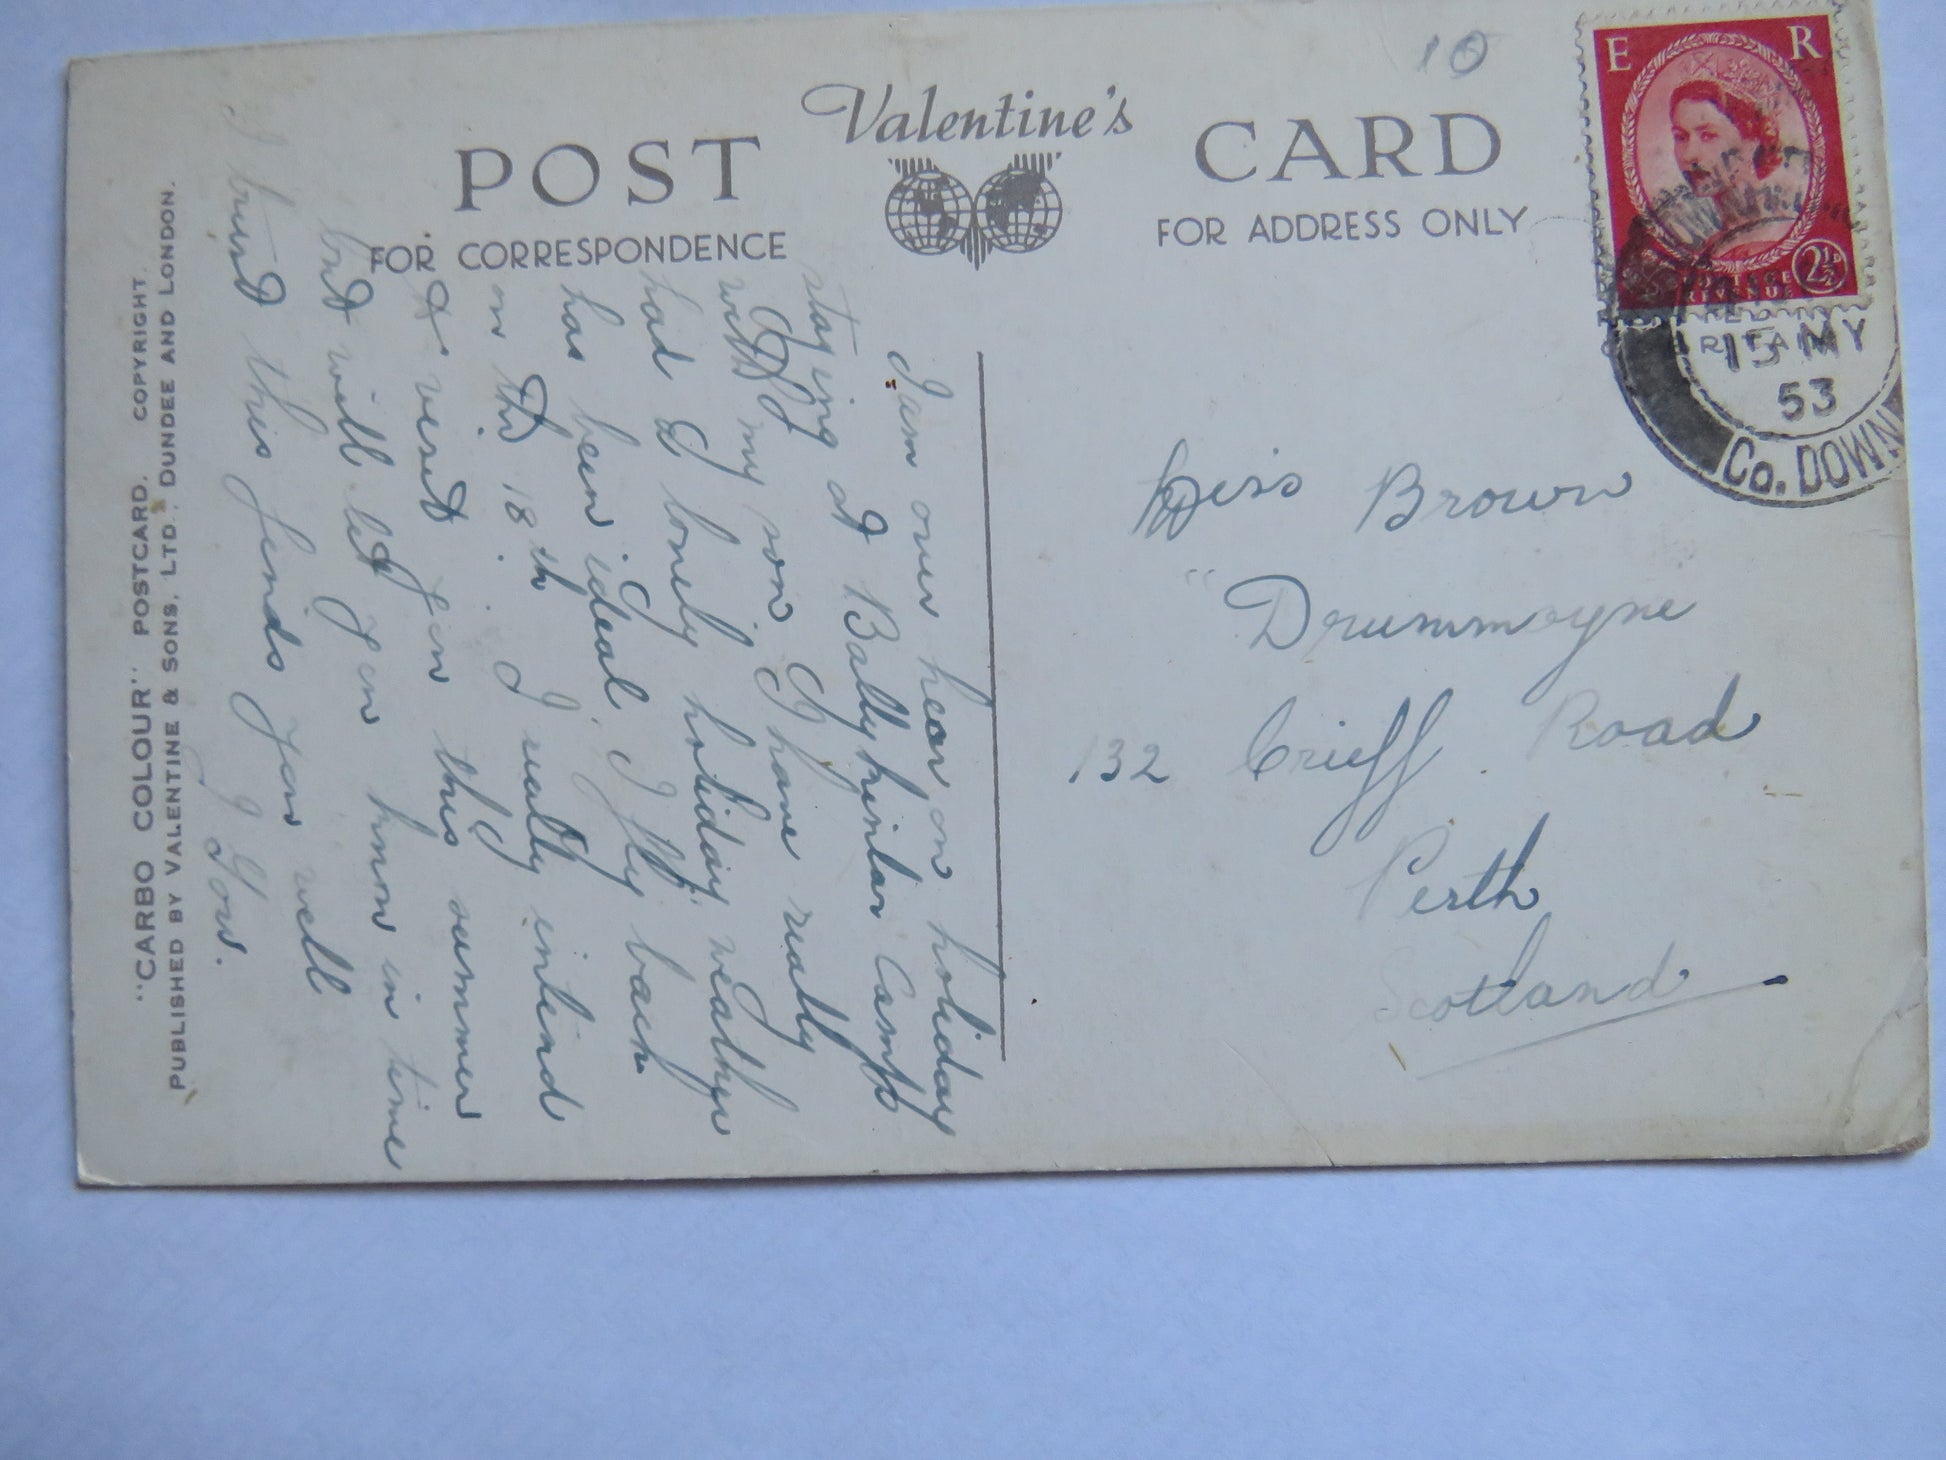 POST
Valentine's
CARD
FOR CORRESPONDENCE
FOR ADDRESS ONLY
10
E R
2½D
15 MY
53
Co. DOWN
Miss Brown
"Drummoyne
132 Crieff Road
Perth
Scotland
I am over hear on holiday
staying at Ballykinlar Camp
with my son I have really
had a lovely holiday. weather
has been ideal. I fly back
on the 18th. I really intend
to visit you this summer
but will let you know in time
I trust this finds you well
J Gow.
"CARBO COLOUR" POSTCARD. COPYRIGHT.
PUBLISHED BY VALENTINE & SONS, LTD., DUNDEE AND LONDON.